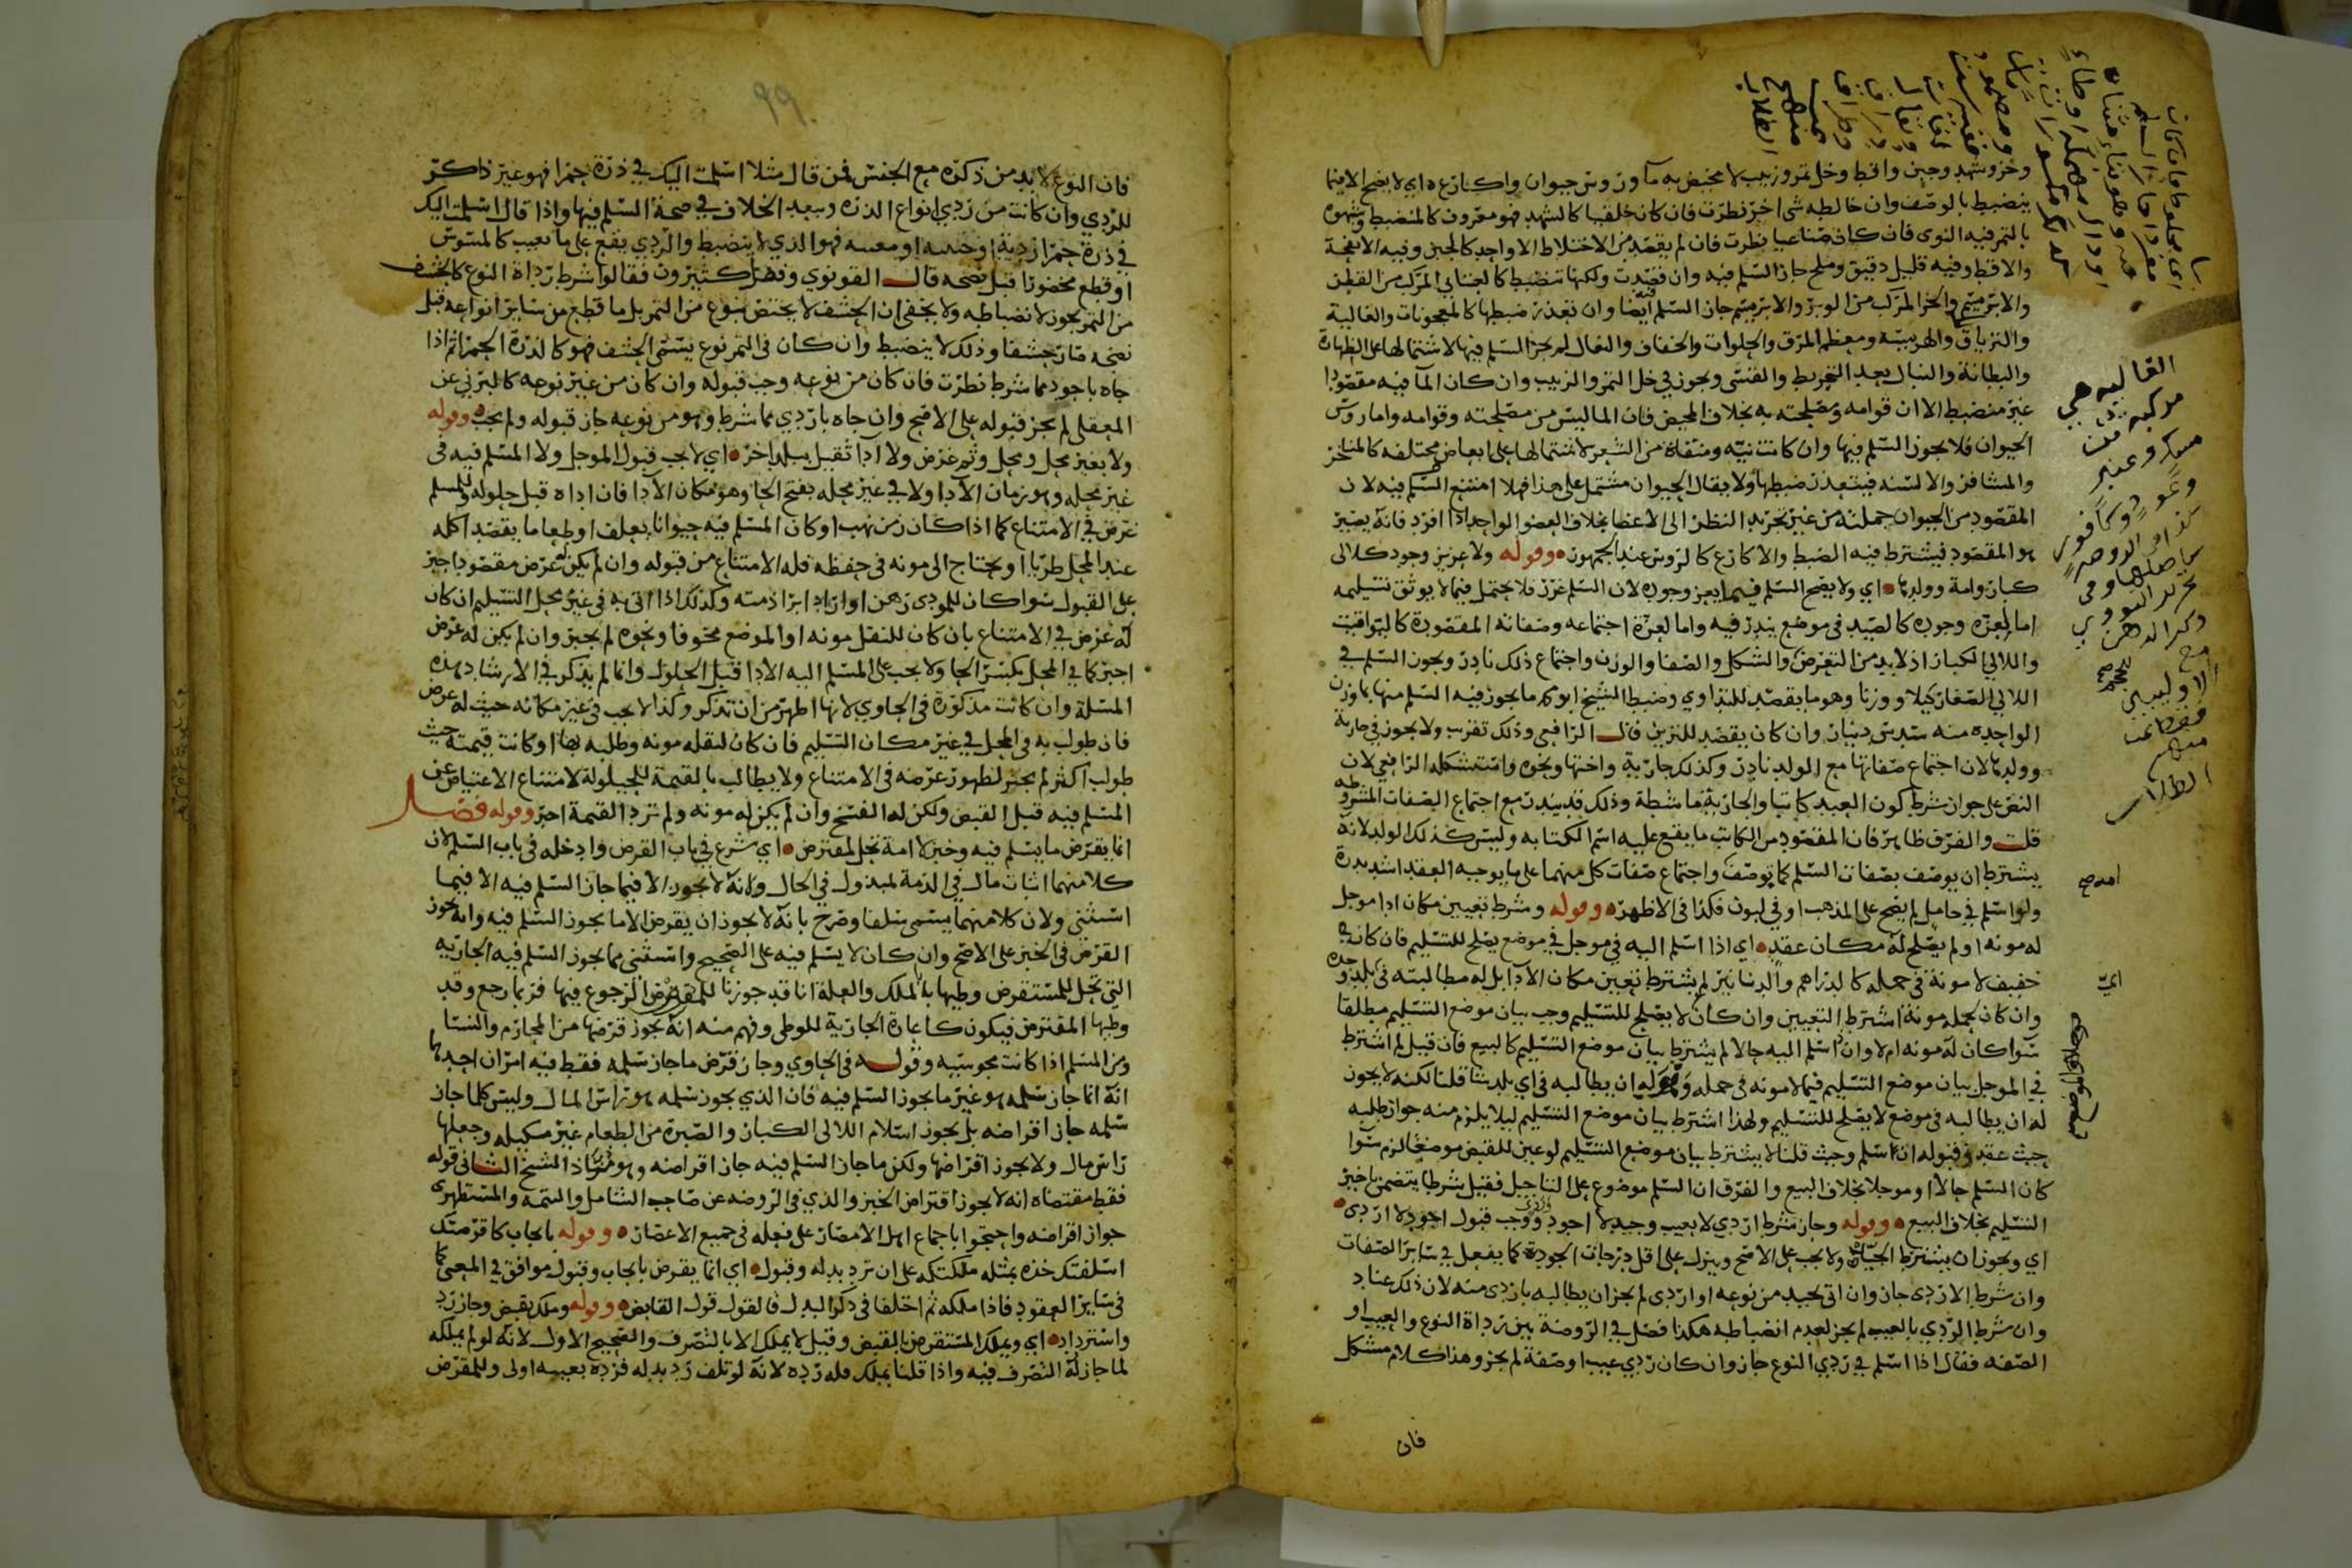 وخز وشهد وجبن واقط وخل تمر وزبيب لا مخيض به مآ وروس حيوان واكارعه اي لا يصح الا فيما
ينضبط بالوصف وان خالطه شي اخر نظرت فان كان خلقيا كالشهد فهو معروف كالمنضبط وشبهوه
بالتمر فيه النوى فان كان صناعيا نظرت فان لم يقصد من الاختلاط الا واحد كالجبن وفيه الانفحة
والاقط وفيه قليل دقيق وملح جاز السلم فيه وان قصدت ولكنها تنضبط كالعتابي المركب من القطن
والابريسم والخز المركب من الوبر والابريسم جاز السلم ايضا وان تعذر ضبطها كالمعجونات والغالية
والترياق والهريسة ومعظم المرق والحلوات والخفاف والنعال لم يجز السلم فيها لاشتمالها على الظهارة
والبطانة والنبال بعد الخرط والقسى ويجوز في خل التمر والزبيب وان كان المآ فيه مقصودا
غير منضبط الا ان قوامه ومصلحته به بخلاف المخيض فان الما ليس من مصلحته وقوامه واما روس
الحيوان فلا يجوز السلم فيها وان كانت نيه ومنقاة من الشعر لاشتمالها على ابعاض مختلفه كالمناخر
والمشافر والالسنه فيتعذر ضبطها ولا يقال الحيوان مشتمل على هذا فهلا امتنع السلم فيه لان
المقصود من الحيوان جملته من غير تجريد النظر الى الاعضا بخلاف العضو الواحد اذا افرد فانه يصير
هو المقصود فيشترط فيه الضبط والاكارع كالروس عند الجمهور وقوله ولا عزيز وجود كلالى
كبار وامة وولدها اي ولا يصح السلم فيما يعز وجوده لان السلم غرر فلا يحتمل فيما لا يوثق بتسليمه
اما لعزه وجوده كالصيد في موضع يندر فيه واما لعزة اجتماعه وصفاته المقصودة كاليواقيت
واللالي الكبار اذ لابد من التعرض والشكل والصفا والوزن واجتماع ذلك نادر ويجوز السلم في
اللالي الصغار كيلا ووزنا وهو ما يقصد للتداوي وضبط الشيخ ابو محمد ما يجوز فيه السلم منها بما وزن
الواحده منه سدس دينار وان كان يقصد للتزين قال الرافعي وذلك تقريب ولا يجوز في جارية
وولدها لان اجتماع صفاتها مع الولد نادر وكذلك جارية واختها ونحوه واستشكله الرافعي لان
النص على جواز شرط كون العبد كاتبا والجارية ماشطة وذلك قد يندر مع اجتماع الصفات المشروطه
قلت والفرق ظاهر فان المقصود من الكاتب ما يقع عليه اسم الكتابه وليس كذلك الولد لانه
يشترط ان يوصف بصفات السلم كما توصف واجتماع صفات كل منهما على ما يوجبه العقد اشد ندرة
ولو اسلم في حامل لم يصح على المذهب او في لبون فكذا في الاظهر وقوله وشرط تعيين مكان ادا موجل
له مونه او لم يصلح له مكان عقد اي اذا اسلم اليه في موجل في موضع يصلح للتسليم فان كان في
خفيف لا مونة في حمله كالدراهم والدنانير لم يشترط تعيين مكان الادآ بل له مطالبته في بلده
وان كان لحمله مونة اشترط التعيين وان كان لا يصلح للتسليم وجب بيان موضع التسليم مطلقا
سوا كان له مونه ام لا وان اسلم اليه حالا لم يشترط بيان موضع التسليم كالبيع فان قيل لم اشترط
في الموجل بيان موضع التسليم فيما لا مونه في حمله وله ان يطالبه في اي بلد شا قلنا لكنه لا يجوز
له ان يطالبه في موضع لا يصلح للتسليم ولهذا اشترط بيان موضع التسليم ليلا يلزم منه جواز طلبه
حيث عقد وقبوله ان اسلم وحيث قلنا لا يشترط بيان موضع التسليم لو عين للقبض موضعا لزم سوا
كان السلم حالا او موجلا بخلاف البيع والفرق ان السلم موضوع على التاجيل فقبل شرطا يتضمن تاخير
التسليم بخلاف البيع وقوله وجاز شرط اردي لا بعيب وجيد لا اجود ووجب قبول اجود لا اردى
اي ويجوز ان يشترط ولا يجب على الاصح وينزل على اقل درجات الجودة كما يفعل في ساير الصفات
وان شرط الاردى جاز وان اتى بجيد من نوعه او اردى لم يجز ان يطالبه باردى منه لان ذلك عناد
وان شرط الردي بالعيب لم يجز لعدم انضباطه هكذا فصل في الروضة بين رداة النوع والعيب او
الصفه فقال اذا اسلم في ردي النوع جاز وان كان ردي عيب او صفة لم يجز وهذا كلام مشكل
فان
الغاليه هي
مركبة من
مسك وعنبر
وعود وكافور
كذا في الروضه
تحرير النووي
ذكر الدهن
مع
الاوليين
فقط
الطلاب
٩٩
فان النوع لابد من ذكره مع الجنس فمن قال مثلا اسلمت اليك في ذرة حمرا فهو غير ذاكر
للردي وان كانت من ردي انواع الذره وببعد الخلاف في صحة السلم فيها واذا قال اسلمت اليك
في ذرة حمرا ردية او معيبه فهو الذي لا ينضبط والردي يقع على ما تعيب كالمسوس
او قطع مخضرما قبل نضجه قال القونوي وفصل كثيرون فقالوا شرط رداة النوع كالحشف
من التمر يجوز لانضباطه ولا يخفى ان الحشف لا يختص بنوع من التمر بل ما قطع من ساير انواعه قبل
نضجه صار حشفا وذلك لا ينضبط وان كان في التمر نوع يسمى الحشف فهو كالذرة الحمرا ثم اذا
جاه باجود مما شرط نظرت فان كان من نوعه وجب قبوله وان كان من غير نوعه كالبرني عن
المعقلي لم يجز قبوله على الاصح وان جاه باردي مما شرط وهو من نوعه جاز قبوله ولم يجب وقوله
ولا بغير محل ومحل وثم غرض ولا ادآ ثقيل ببلد اخر اي لا يجب قبول الموجل ولا المسلم فيه في
غير محله وهو زمان الادا ولا في غير محله بفتح الحا وهو مكان الادا فان اداه قبل حلوله وللمسلم
غرض في الامتناع كما اذا كان زمن نهب او كان المسلم فيه حيوانا يعلف او طعاما يقصد اكله
عند المحل طريا او يحتاج الى مونه في حفظه فله الامتناع من قبوله وان لم يكن له غرض مقصود اجبر
على القبول سوا كان للمودي رهن او اراد ابرا ذمته وكذلك اذا اتى به في غير محل التسليم ان كان
له غرض في الامتناع بان كان للنقل مونه او الموضع مخوفا ونحوه لم يجبر وان لم يكن له غرض
اجبر كما في المحل بكسر الحا ولا يجب على المسلم اليه الادا قبل الحلول وانما لم يذكر في الارشاد هذه
المسلة وان كانت مذكورة في الحاوي لانها اظهر من ان تذكر وكذا لا يجب في غير مكانه حيث له غرض
فان طولب به في المحل في غير مكان التسليم فان كان لنقله مونه وطلبه بها او كانت قيمته حيث
طولب اكثر لم يجبر لظهور غرضه في الامتناع ولا يطالب بالقيمة للحيلولة لامتناع الاعتياض عن
المسلم فيه قبل القبض ولكن له الفسخ وان لم يكن له مونه ولم تزد القيمة اجبر وقوله فصل
انما يقرض ما يسلم فيه وخبز لا امة تحل لمقترض اي شرع في باب القرض وادخله في باب السلم لان
كلا منهما اثبات مال في الذمة لمبذول في الحال وانه لا يجوز الا فيما جاز السلم فيه الا فيما
استثني ولان كلا منهما يسمى سلفا وصرح بانه لا يجوز ان يقرض الا ما يجوز السلم فيه وانه يجوز
القرض في الخبز على الاصح وان كان لا يسلم فيه على الصحيح واستثنى مما يجوز السلم فيه الجاريه
التي تحل للمستقرض وطيها بالملك والعلة انا قد جوزنا للمقرض الرجوع فيها فربما رجع وقد
وطيها المقترض فيكون كاعارة الجارية للوطى وفهم منه انه يجوز قرضها من المحارم والنسا
ومن المسلم اذا كانت مجوسيه وقوله في الحاوي وجاز قرض ما جاز سلمه فقط فيه امران احدهما
انه انما جاز سلمه هو غير ما يجوز السلم فيه فان الذي يجوز سلمه هو راس المال وليس كلما جاز
سلمه جاز اقراضه بل يجوز اسلام اللالى الكبار والصبرة من الطعام غير مكيله وجعلها
راس مال ولا يجوز اقراضها ولكن ما جاز السلم فيه جاز اقراضه وهو مراد الشيخ الثاني قوله
فقط مقتضاه انه لا يجوز اقتراض الخبز والذي في الروضه عن صاحب الشامل والتتمه والمستظهرى
جواز اقراضه واحتجوا باجماع اهل الامصار على فعله في جميع الاعصار وقوله بايجاب كاقرضتك
اسلفتك خذه بمثله ملكتكه على ان ترد بدله وقبول اي انما يقرض بايجاب وقبول موافق في المعنى كما
في ساير العقود فاذا ملكه ثم اختلفا في ذكر البدل فالقول قول القابض وقوله وملك بقبض وجاز رد
واسترداد اي ويملك المستقرض بالقبض وقيل لا يملك الا بالتصرف والصحيح الاول لانه لو لم يملكه
لما جاز له التصرف فيه واذا قلنا يملك فله رده لانه لو تلف رد بدله فرده بعينه اولى وللمقرض